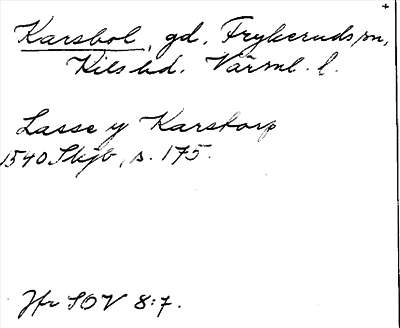 Karsbol, gd, Frykeruds sn,
Kils hd. Värml. l.
Lasse y Karstorp
1540 Skjb, s. 175.
Jfr SOV 8:7.